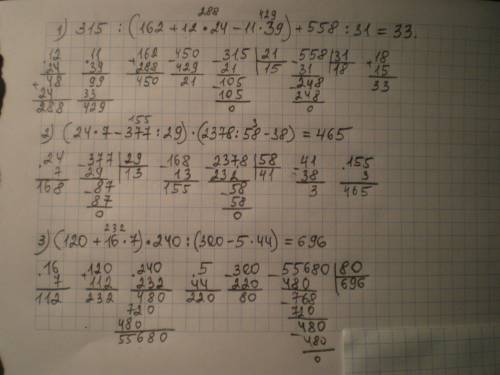 288 429
1) 315 : (162 + 12 · 24 - 11 · 39) + 558 : 31 = 33.
· 12 · 11 + 162 - 450 - 315 | 21 - 558 | 31 + 18
24 39 288 429 21 | 15 31 | 18 15
+ 48 99 450 21 - 105 - 248 33
24 33 105 248
288 429 0 0
155 3
2) (24 · 7 - 377 : 29) · (2378 : 58 - 38) = 465
· 24 - 377 | 29 - 168 - 2378 | 58 - 41 · 155
7 29 | 13 13 232 | 41 38 3
168 - 87 155 - 58 3 465
87 58
0 0
232
3) (120 + 16 · 7) · 240 : (300 - 5 · 44) = 696
· 16 + 120 · 240 · 5 - 300 - 55680 | 80
7 112 232 44 220 480 | 696
112 232 480 220 80 - 768
720 720
480 - 480
55680 480
0